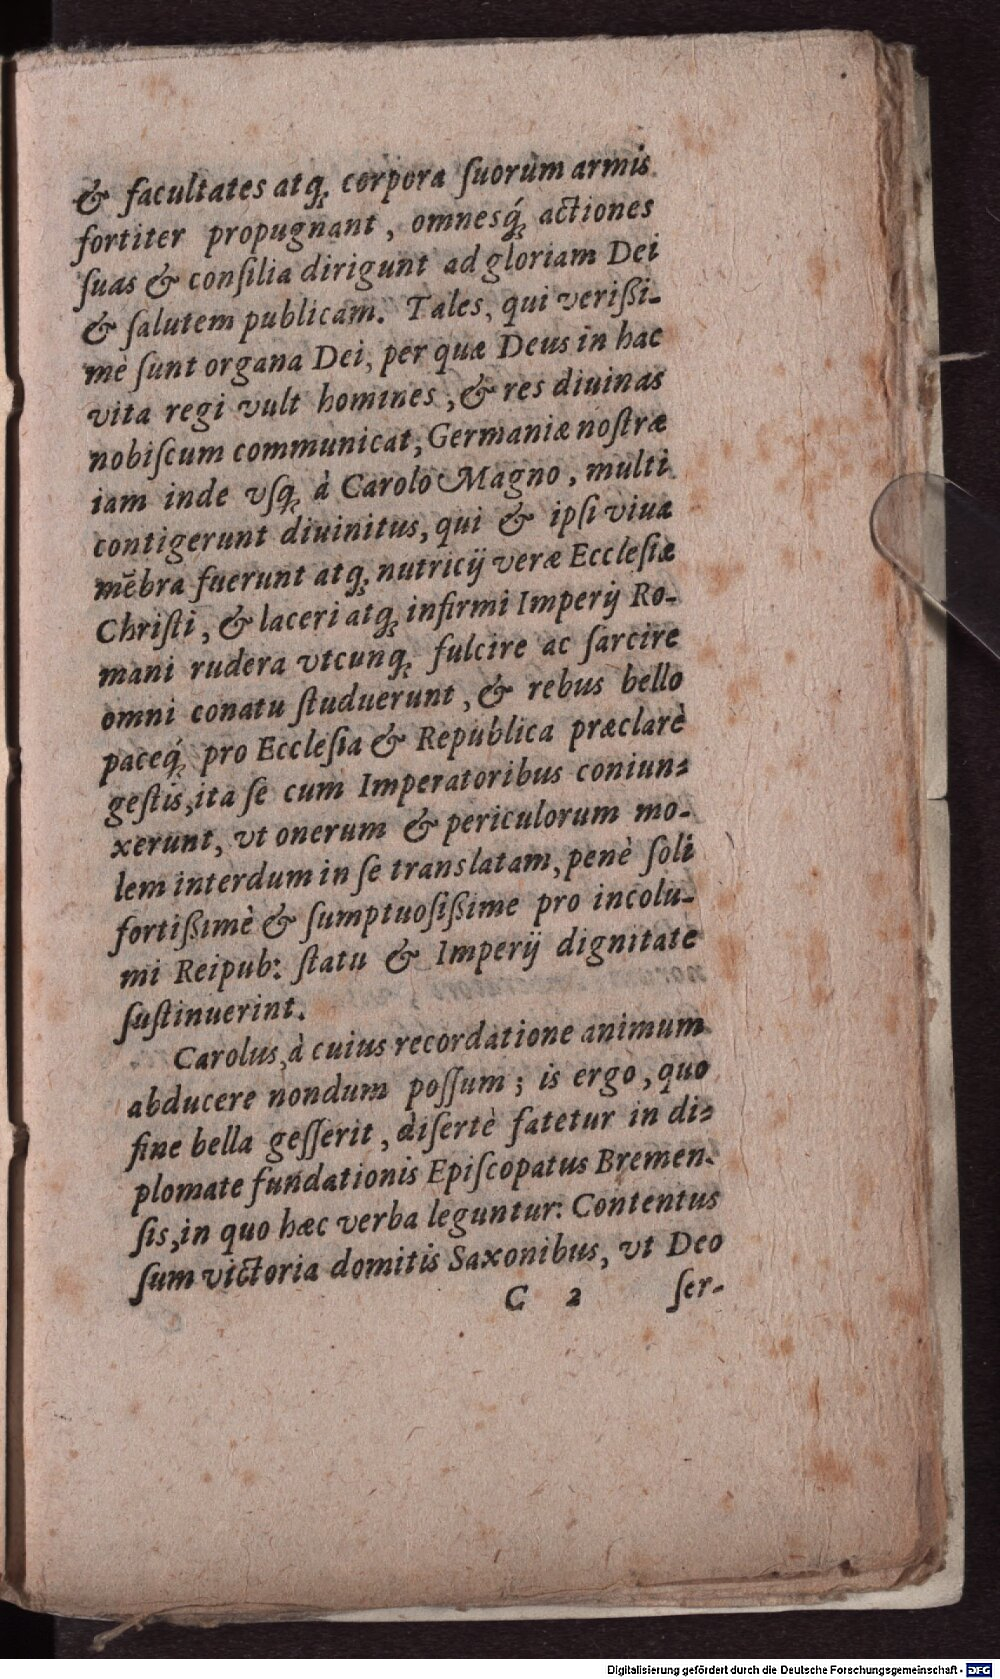 & facultates atq́; corpora ſuorum armis
fortiter propugnant, omnesq́; actiones
ſuas & conſilia dirigunt ad gloriam Dei
& ſalutem publicam. Tales, qui verißi-
mè ſunt organa Dei, per quæ Deus in hac
vita regi vult homines, & res diuinas
nobiſcum communicat, Germaniæ noſtræ
iam inde vſq; à Carolo Magno, multi
contigerunt diuinitus, qui & ipſi viuæ
mēbra fuerunt atq; nutricij veræ Eccleſiæ
Chriſti, & laceri atq; infirmi Imperij Ro-
mani rudera vtcunq; fulcire ac ſarcire
omni conatu ſtuduerunt, & rebus bello
paceq́; pro Eccleſia & Republica præclarè
geſtis, ita ſe cum Imperatoribus coniun-
xerunt, vt onerum & periculorum mo-
lem interdum in ſe translatam, penè ſoli
fortißimè & ſumptuoſißime pro incolu-
mi Reipub: ſtatu & Imperij dignitate
ſuſtinuerint.
Carolus, à cuius recordatione animum
abducere nondum poſſum; is ergò, quo
fine bella geſſerit, diſertè fatetur in di-
plomate fundationis Epiſcopatus Bremen-
ſis, in quo hæc verba leguntur: Contentus
ſum victoria domitis Saxonibus, vt Deo
C 2 ſer-
Digitalisierung gefördert durch die Deutsche Forschungsgemeinschaft - DFG